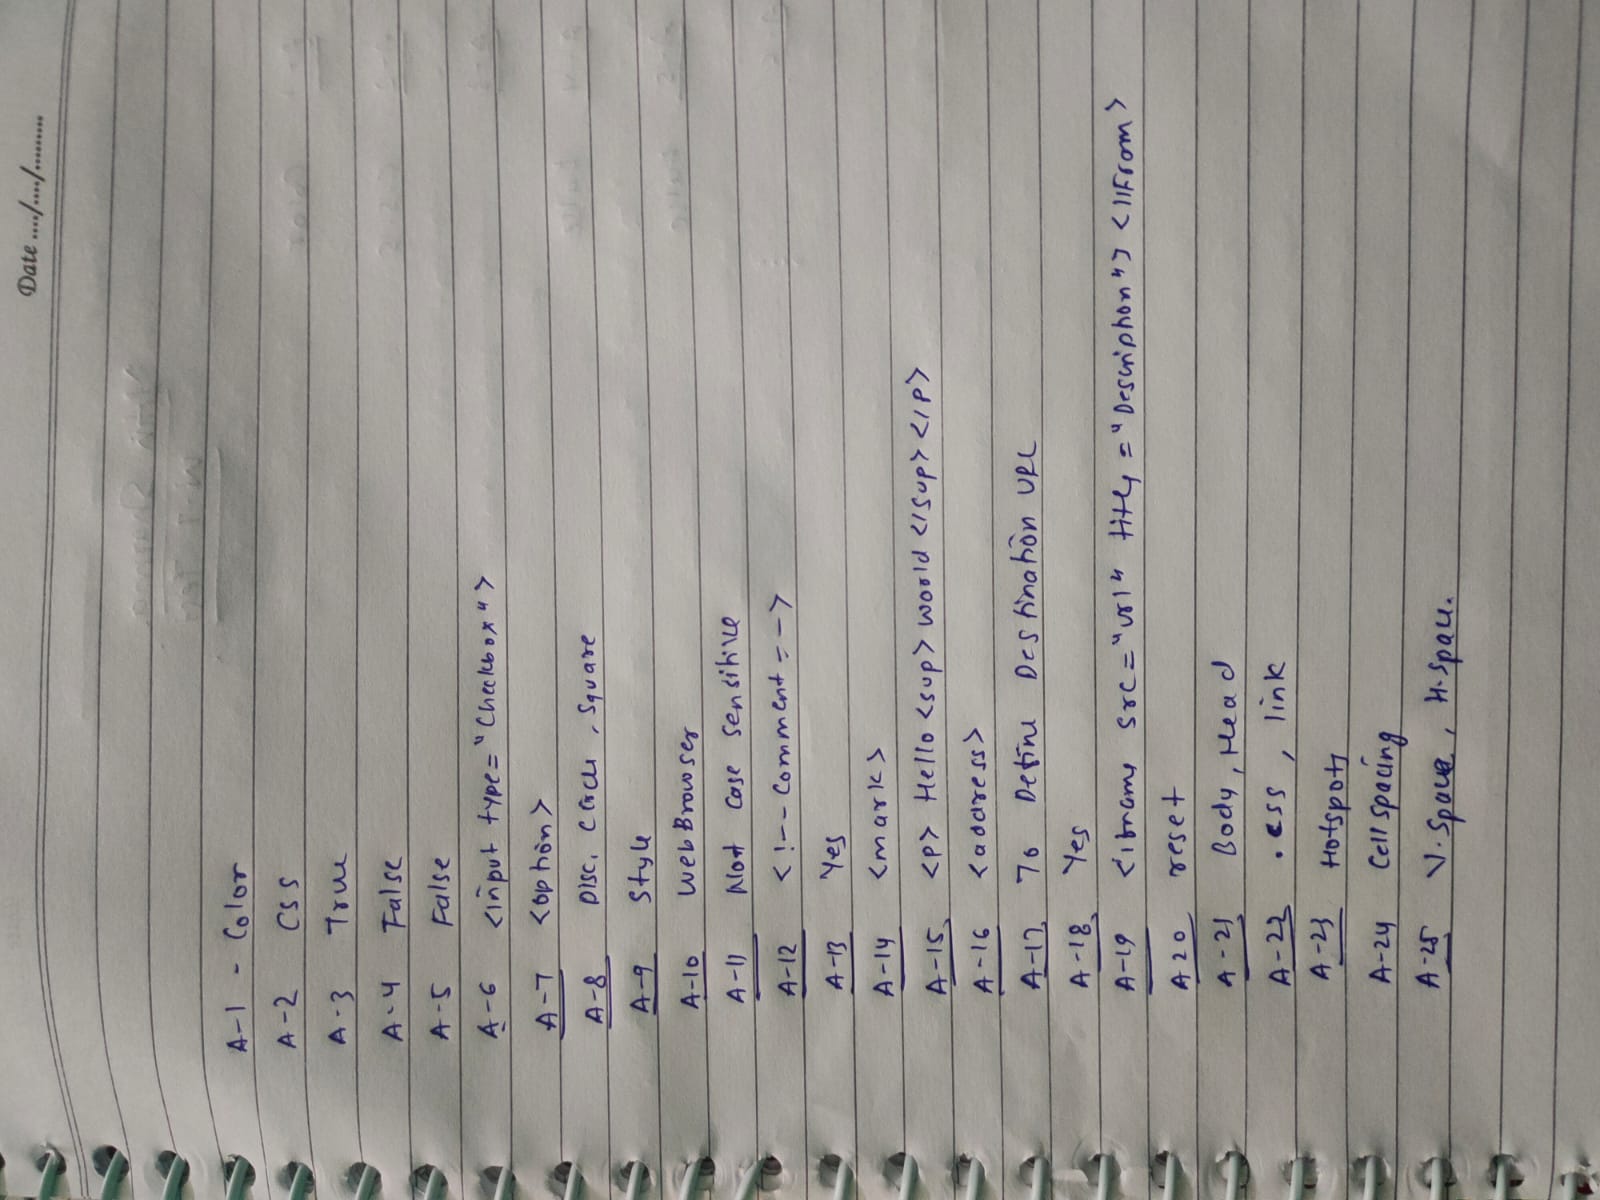 Date ..../..../.........
A-1 - Color
A-2 CSS
A-3 True
A-4 False
A-5 False
A-6 <input type="Checkbox">
A-7 <option>
A-8 Disc, Circle, Square
A-9 Style
A-10 Web Browser
A-11 Not Case Sensitive
A-12 <!-- Comment -->
A-13 Yes
A-14 <mark>
A-15 <p> Hello <sup> world </sup> </p>
A-16 <address>
A-17 To Define Destination URL
A-18 Yes
A-19 src="url" ="Description">
A 20 reset
A-21 Body, Head
A-22 .css, link
A-23 Hotspots
A-24 Cell spacing
A-25 V. Space, H. Space.